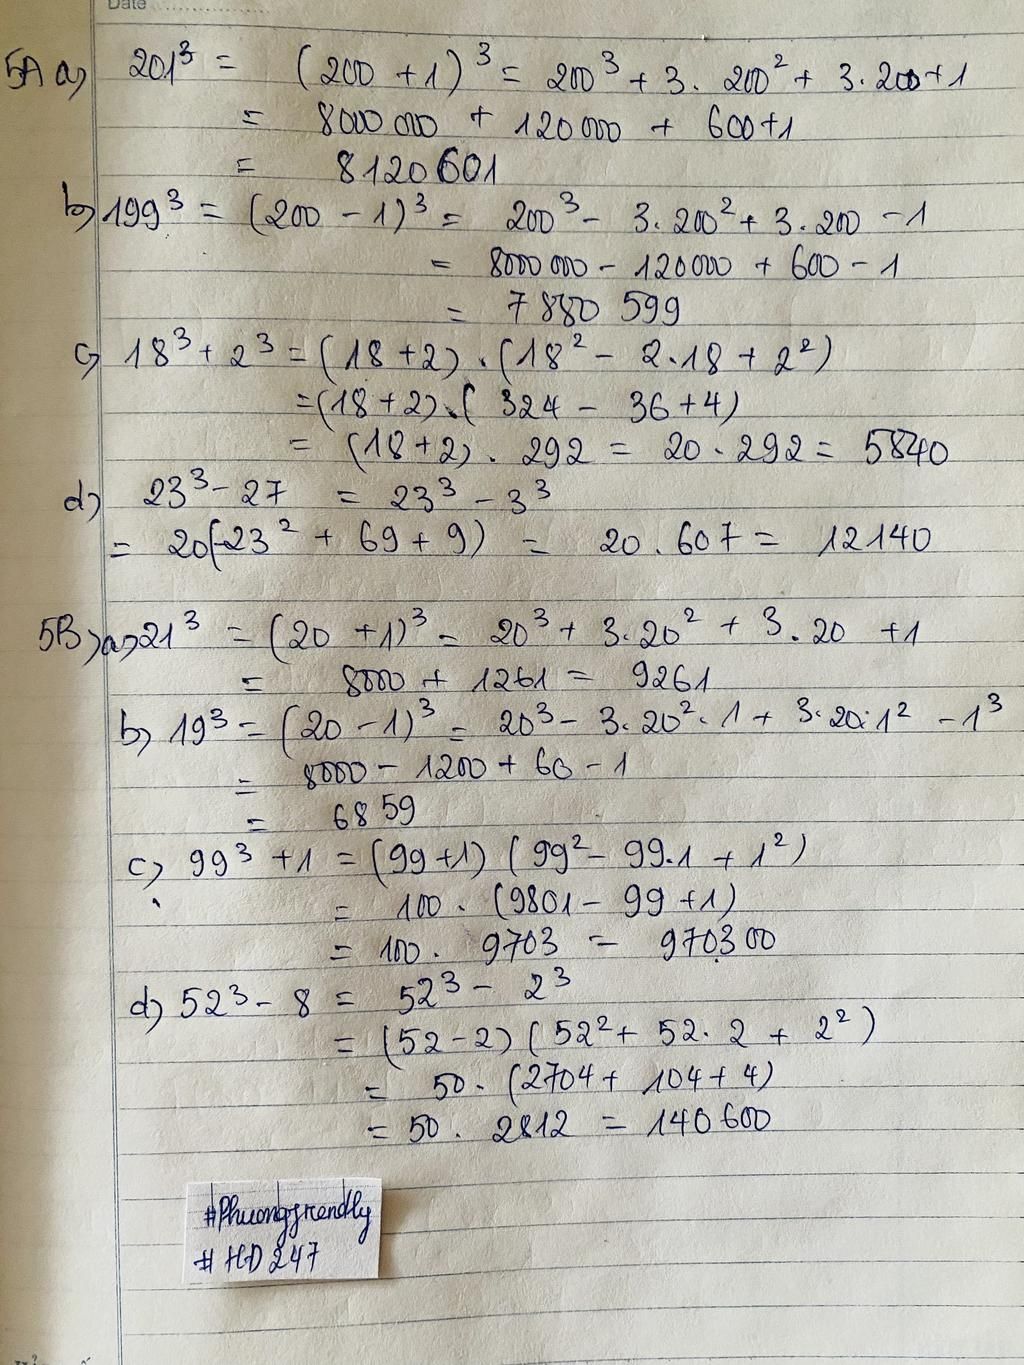 Date
5A a) 201³ = (200 + 1)³ = 200³ + 3. 200² + 3.200+1
= 8000 000 + 120000 + 600+1
= 8120601
b) 199³ = (200 - 1)³ = 200³ - 3.200² + 3.200 - 1
= 8000 000 - 120000 + 600 - 1
= 7880 599
c) 18³ + 2³ = (18 + 2) . (18² - 2.18 + 2²)
= (18 + 2). ( 324 - 36 + 4)
= (18+2) . 292 = 20 . 292 = 5840
d) 23³ - 27 = 23³ - 3³
= 20(23² + 69 + 9) = 20 . 607 = 12140
5B) a, 21³ = (20 + 1)³ = 20³ + 3.20² + 3.20 + 1
= 8000 + 1261 = 9261
b) 19³ = (20 - 1)³ = 20³ - 3.20².1 + 3.20.1² - 1³
= 8000 - 1200 + 60 - 1
= 6859
c) 99³ + 1 = (99 + 1) (99² - 99.1 + 1²)
= 100 . (9801 - 99 + 1)
= 100 . 9703 = 970300
d) 52³ - 8 = 52³ - 2³
= (52 - 2) (52² + 52. 2 + 2²)
= 50 . (2704 + 104 + 4)
= 50 . 2812 = 140600
#Phuongfriendly
# HD247